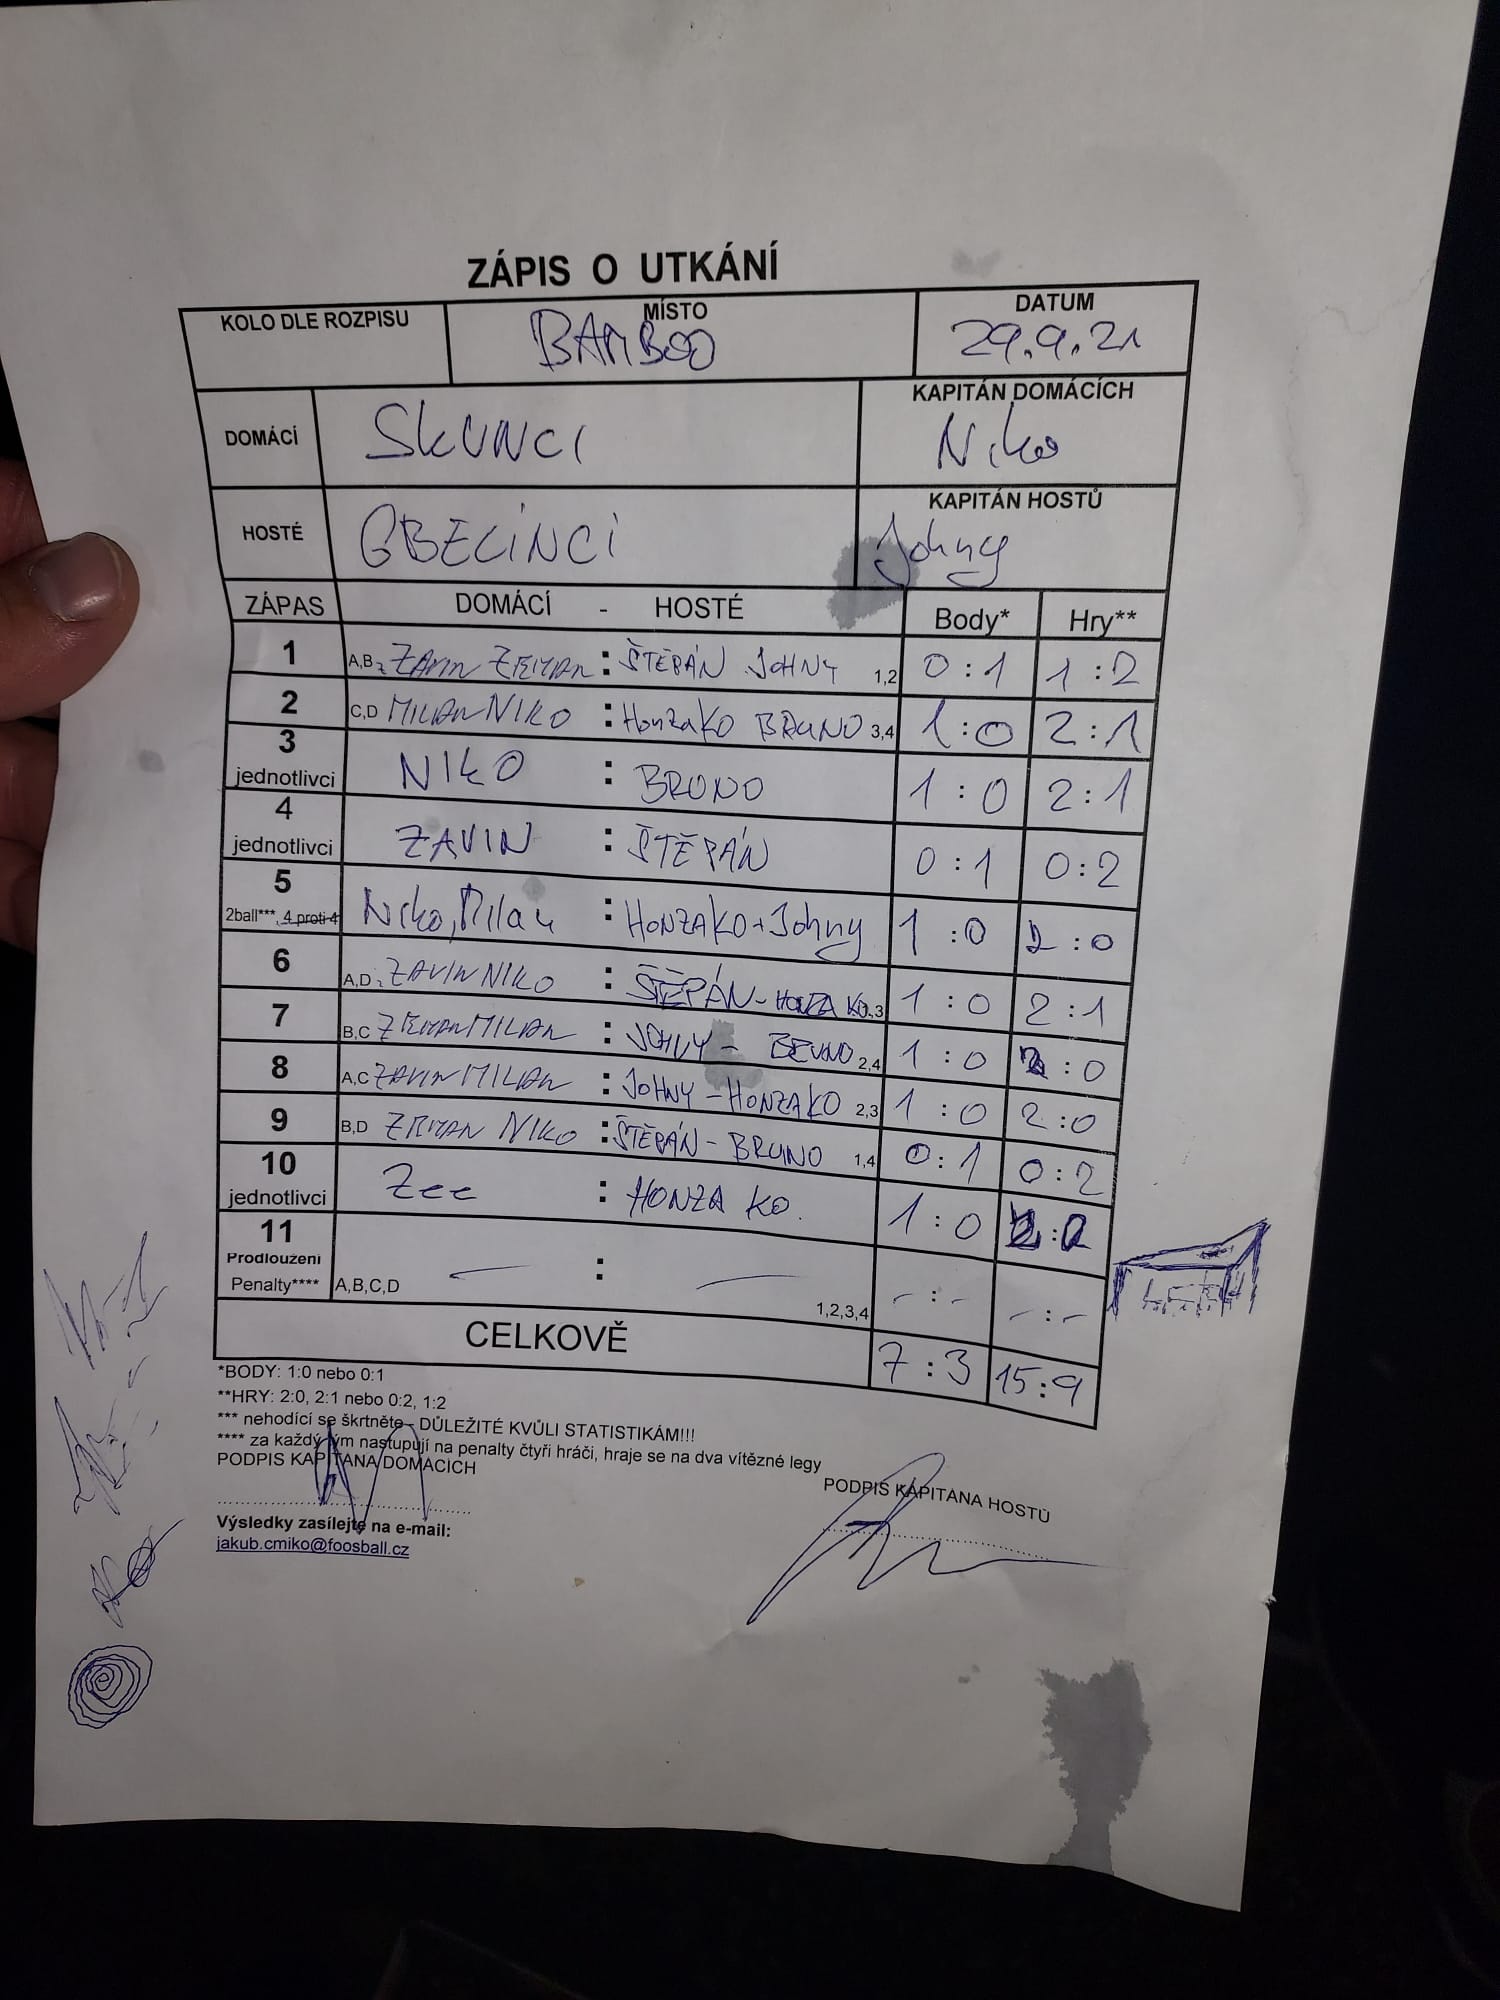 ZÁPIS O UTKÁNÍ
KOLO DLE ROZPISU
MÍSTO
BAMBOO
DATUM
29.9.21
DOMÁCÍ
SKUNCI
KAPITÁN DOMÁCÍCH
Niko
HOSTÉ
GBELÍNCI
KAPITÁN HOSTŮ
Johny
ZÁPAS DOMÁCÍ - HOSTÉ Body* Hry**
1 A,B ZAVIN ZEMAN : ŠTĚPÁN JOHNY 1,2 0:1 1:2
2 C,D MILAN NIKO : HonzaKO BRUNO 3,4 1:0 2:1
3 jednotlivci NIKO : BRUNO 1:0 2:1
4 jednotlivci ZAVIN : ŠTĚPÁN 0:1 0:2
5 2ball***, 4 proti 4 Niko, Milan : HONZAKO + Johny 1:0 2:0
6 A,D ZAVIN NIKO : ŠTĚPÁN - HONZA KO 1,3 1:0 2:1
7 B,C ZEMAN MILAN : JOHNY - BRUNO 2,4 1:0 2:0
8 A,C ZAVIN MILAN : JOHNY - HONZAKO 2,3 1:0 2:0
9 B,D ZEMAN NIKO : ŠTĚPÁN - BRUNO 1,4 0:1 0:2
10 jednotlivci Zee : HONZA KO. 1:0 2:0
11 Prodloužení Penalty**** A,B,C,D - : - 1,2,3,4 - : - - : -
CELKOVĚ 7:3 15:9
*BODY: 1:0 nebo 0:1
**HRY: 2:0, 2:1 nebo 0:2, 1:2
*** nehodící se škrtněte - DŮLEŽITÉ KVŮLI STATISTIKÁM!!!
**** za každý tým nastupují na penalty čtyři hráči, hraje se na dva vítězné legy
PODPIS KAPITANA DOMACICH
PODPIS KAPITANA HOSTŮ
Výsledky zasílejte na e-mail:
jakub.cmiko@foosball.cz